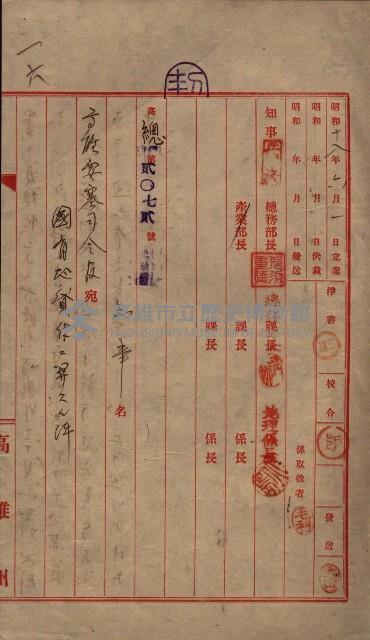 昭和十八年六月一日立案
昭和 年 月 日決裁
昭和 年 月 日發送
淨書
校合
發送
係取扱者 毛利
知事 代決
總務部長
產業部長
總務課長
課長
課長
地理係長
係長
係長
高總第貳〇七貳號
知事名
高雄要塞司令官宛
國有地貸付ニ關スル件
高雄州
高雄市立歷史博物館
KAOHSIUNG MUSEUM OF HISTORY